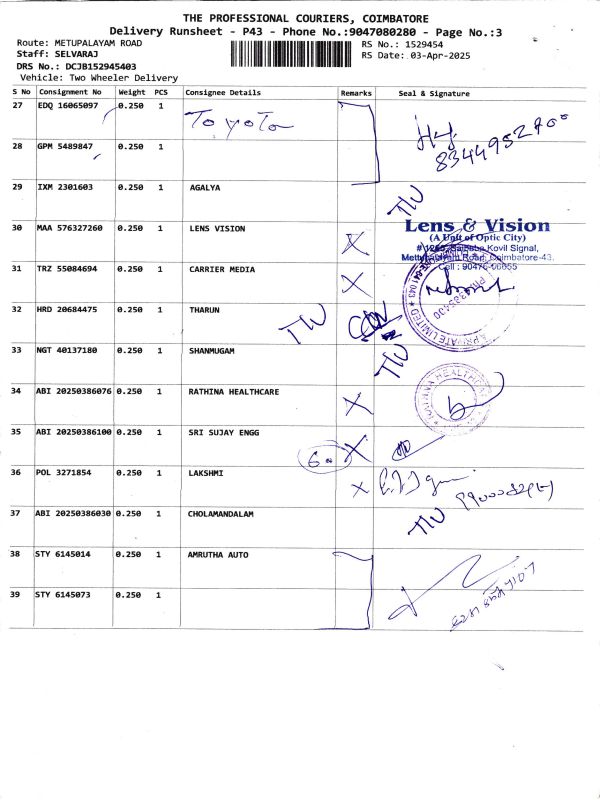 THE PROFESSIONAL COURIERS, COIMBATORE
Delivery Runsheet - P43 - Phone No.:9047080280 - Page No.:3
Route: METUPALAYAM ROAD RS No.: 1529454
Staff: SELVARAJ RS Date: 03-Apr-2025
DRS No.: DCJB152945403
Vehicle: Two Wheeler Delivery
S No Consignment No Weight PCS Consignee Details Remarks Seal & Signature
27 EDQ 16065097 0.250 1 Toyota
28 GPM 5489847 0.250 1
29 IXM 2301603 0.250 1 AGALYA
30 MAA 576327260 0.250 1 LENS VISION X
Lens & Vision
(A Unit of Optic City)
Kovil Signal,
Road, Coimbatore-43.
31 TRZ 55084694 0.250 1 CARRIER MEDIA X
PRIVATE LIMITED
32 HRD 20684475 0.250 1 THARUN
33 NGT 40137180 0.250 1 SHANMUGAM
34 ABI 20250386076 0.250 1 RATHINA HEALTHCARE X
35 ABI 20250386100 0.250 1 SRI SUJAY ENGG X
36 POL 3271854 0.250 1 LAKSHMI X
37 ABI 20250386030 0.250 1 CHOLAMANDALAM
38 STY 6145014 0.250 1 AMRUTHA AUTO
39 STY 6145073 0.250 1